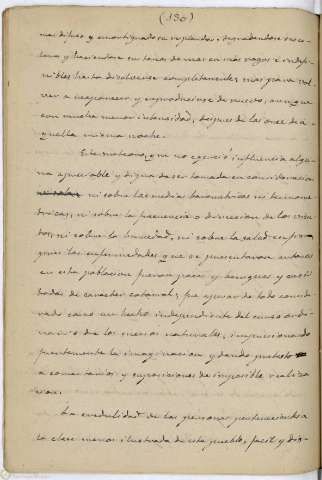 (130)
mas difuso y amortiguado su resplandor; degradandose su co-
lora y haciendose sus tonos de mas en más vagos é indefi-
nibles hasta disolverse completamente, mas para vol-
ver a reaparecer y reproducirse de nuevo, aunque
con mucha menor intensidad, despues de las once de a-
quella misma noche.
Este meteoro, que no egerció influencia algu-
na apreciable y digna de ser tomada en consideracion
ni sobre las medias barometricas ni termome-
tricas, ni sobre la frecuencia o direccion de los vien-
tos, ni sobre la humedad, ni sobre la salud
pues las enfermedades que se presentaron entonces
en esta poblacion fueron pocas y benignas y casi
todas de caracter catarral, fue apesar de todo conside-
rado como un hecho independiente del curso ordi-
nario de los sucesos naturales, impresionando
fuertemente la imaginacion y dando pretesto
a comentarios y suposiciones de imposible realiza-
cion.
La credulidad de las personas pertenecientes
a la clase menos ilustrada de este pueblo, facil y dis-